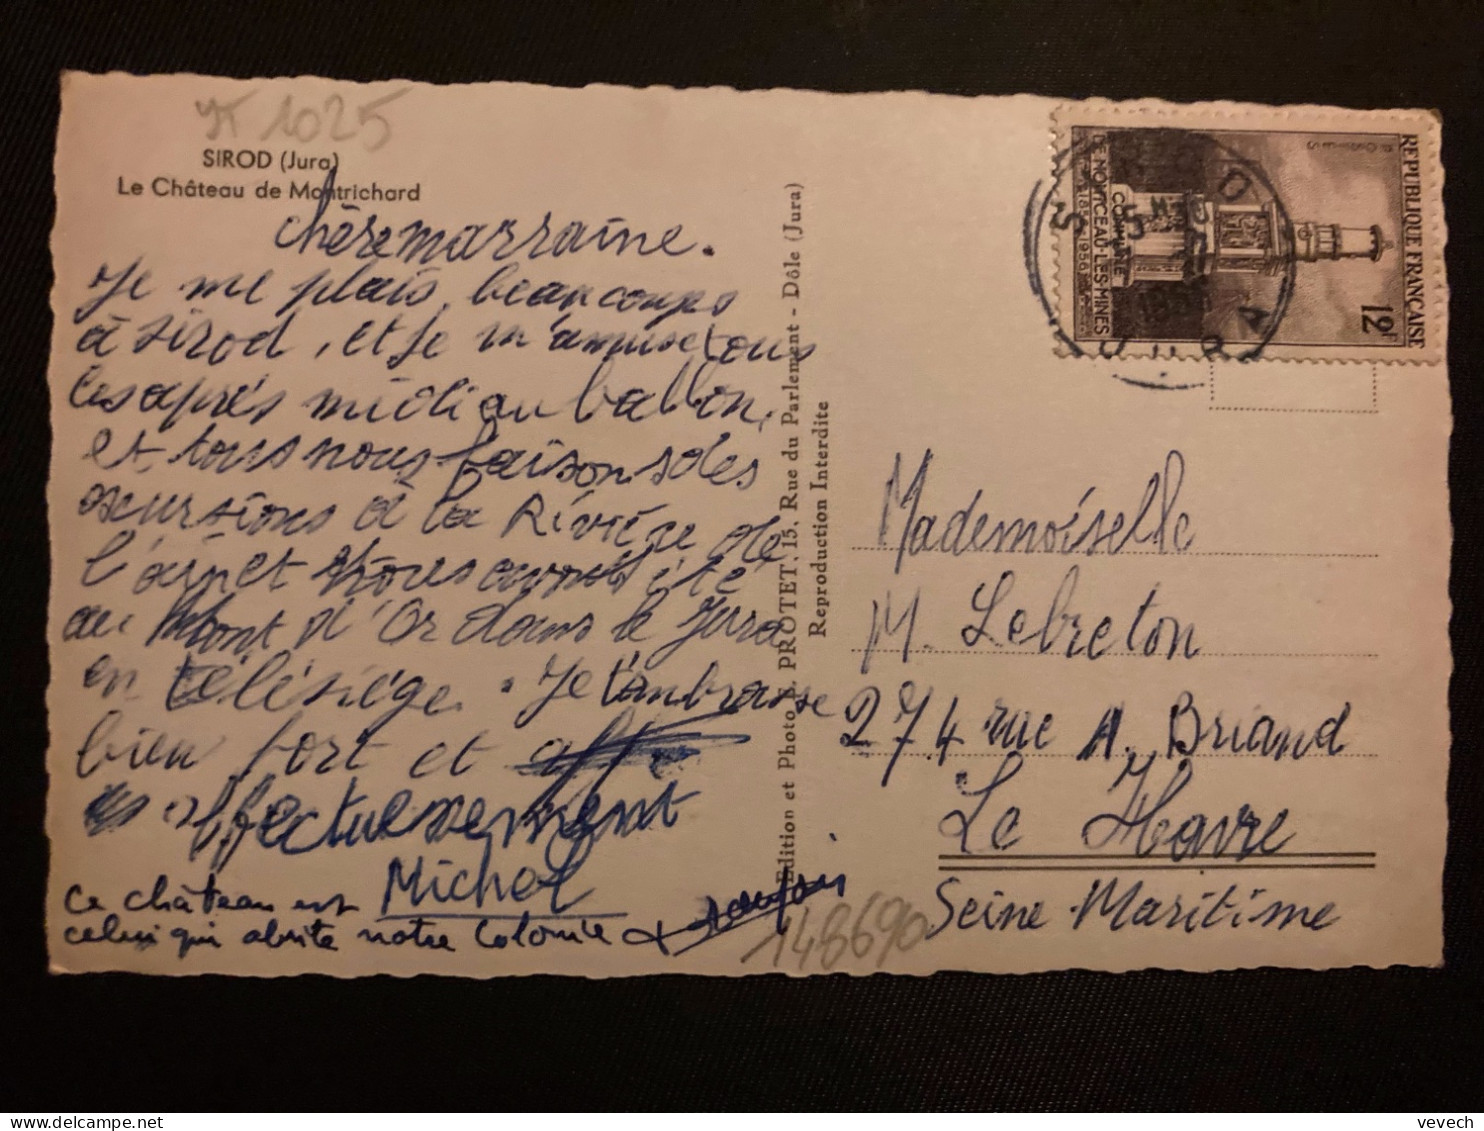 YT 1025
SIROD (Jura)
Le Château de Montrichard
chère marraine.
Je me plais beaucoups
à sirod, et je m'amuse tous
les après midi au ballon,
et tous nous faisons des
exursions à la Rivière de
l'ain et nous avons été
au Mont d'Or dans le Jura
en télésiège. Je t'anbrasse
bien fort et
affectueusement
Michel
Ce château est
celui qui abrite notre Colonie
148690
Edition et Photo E. PROTET, 15, Rue du Parlement - Dôle (Jura)
Reproduction Interdite
REPUBLIQUE FRANÇAISE
12F
COMMUNE
DE MONTCEAU-LES-MINES
1856-1956
SIROD
JURA
Mademoiselle
M. Lebreton
274 rue A. Briand
Le Havre
Seine-Maritime
vevech